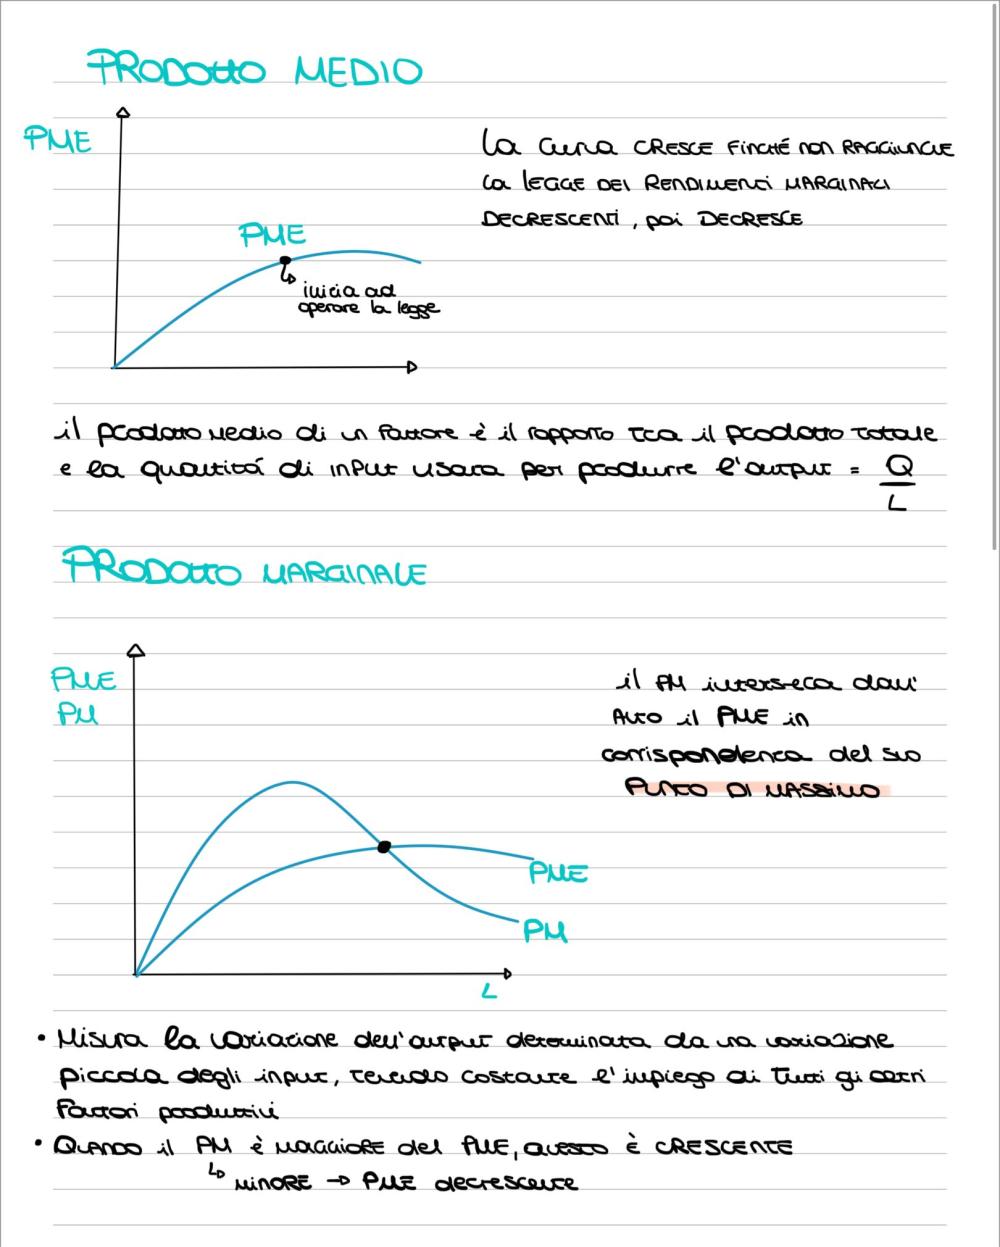 PRODOTTO MEDIO
PME
La curva CRESCE FINCHÉ NON RAGGIUNGE
La LEGGE DEI RENDIMENTI MARGINALI
DECRESCENTI, poi DECRESCE
PME
inizia ad
operare la legge
il prodotto medio di un fattore è il rapporto tra il prodotto totale
e la quantitá di input usata per produrre l'output = Q
L
PRODOTTO MARGINALE
PME
PM
il PM interseca dall'
Alto il PME in
corrispondenza del suo
PUNTO DI MASSIMO
PME
PM
L
• Misura la variazione dell'output determinata da una variazione
piccola degli input, tenendo costante l'impiego di tutti gi altri
Fattori produttivi
• QUANDO il PM è MAGGIORE del PME, questo è CRESCENTE
↳ MINORE → PME decrescente